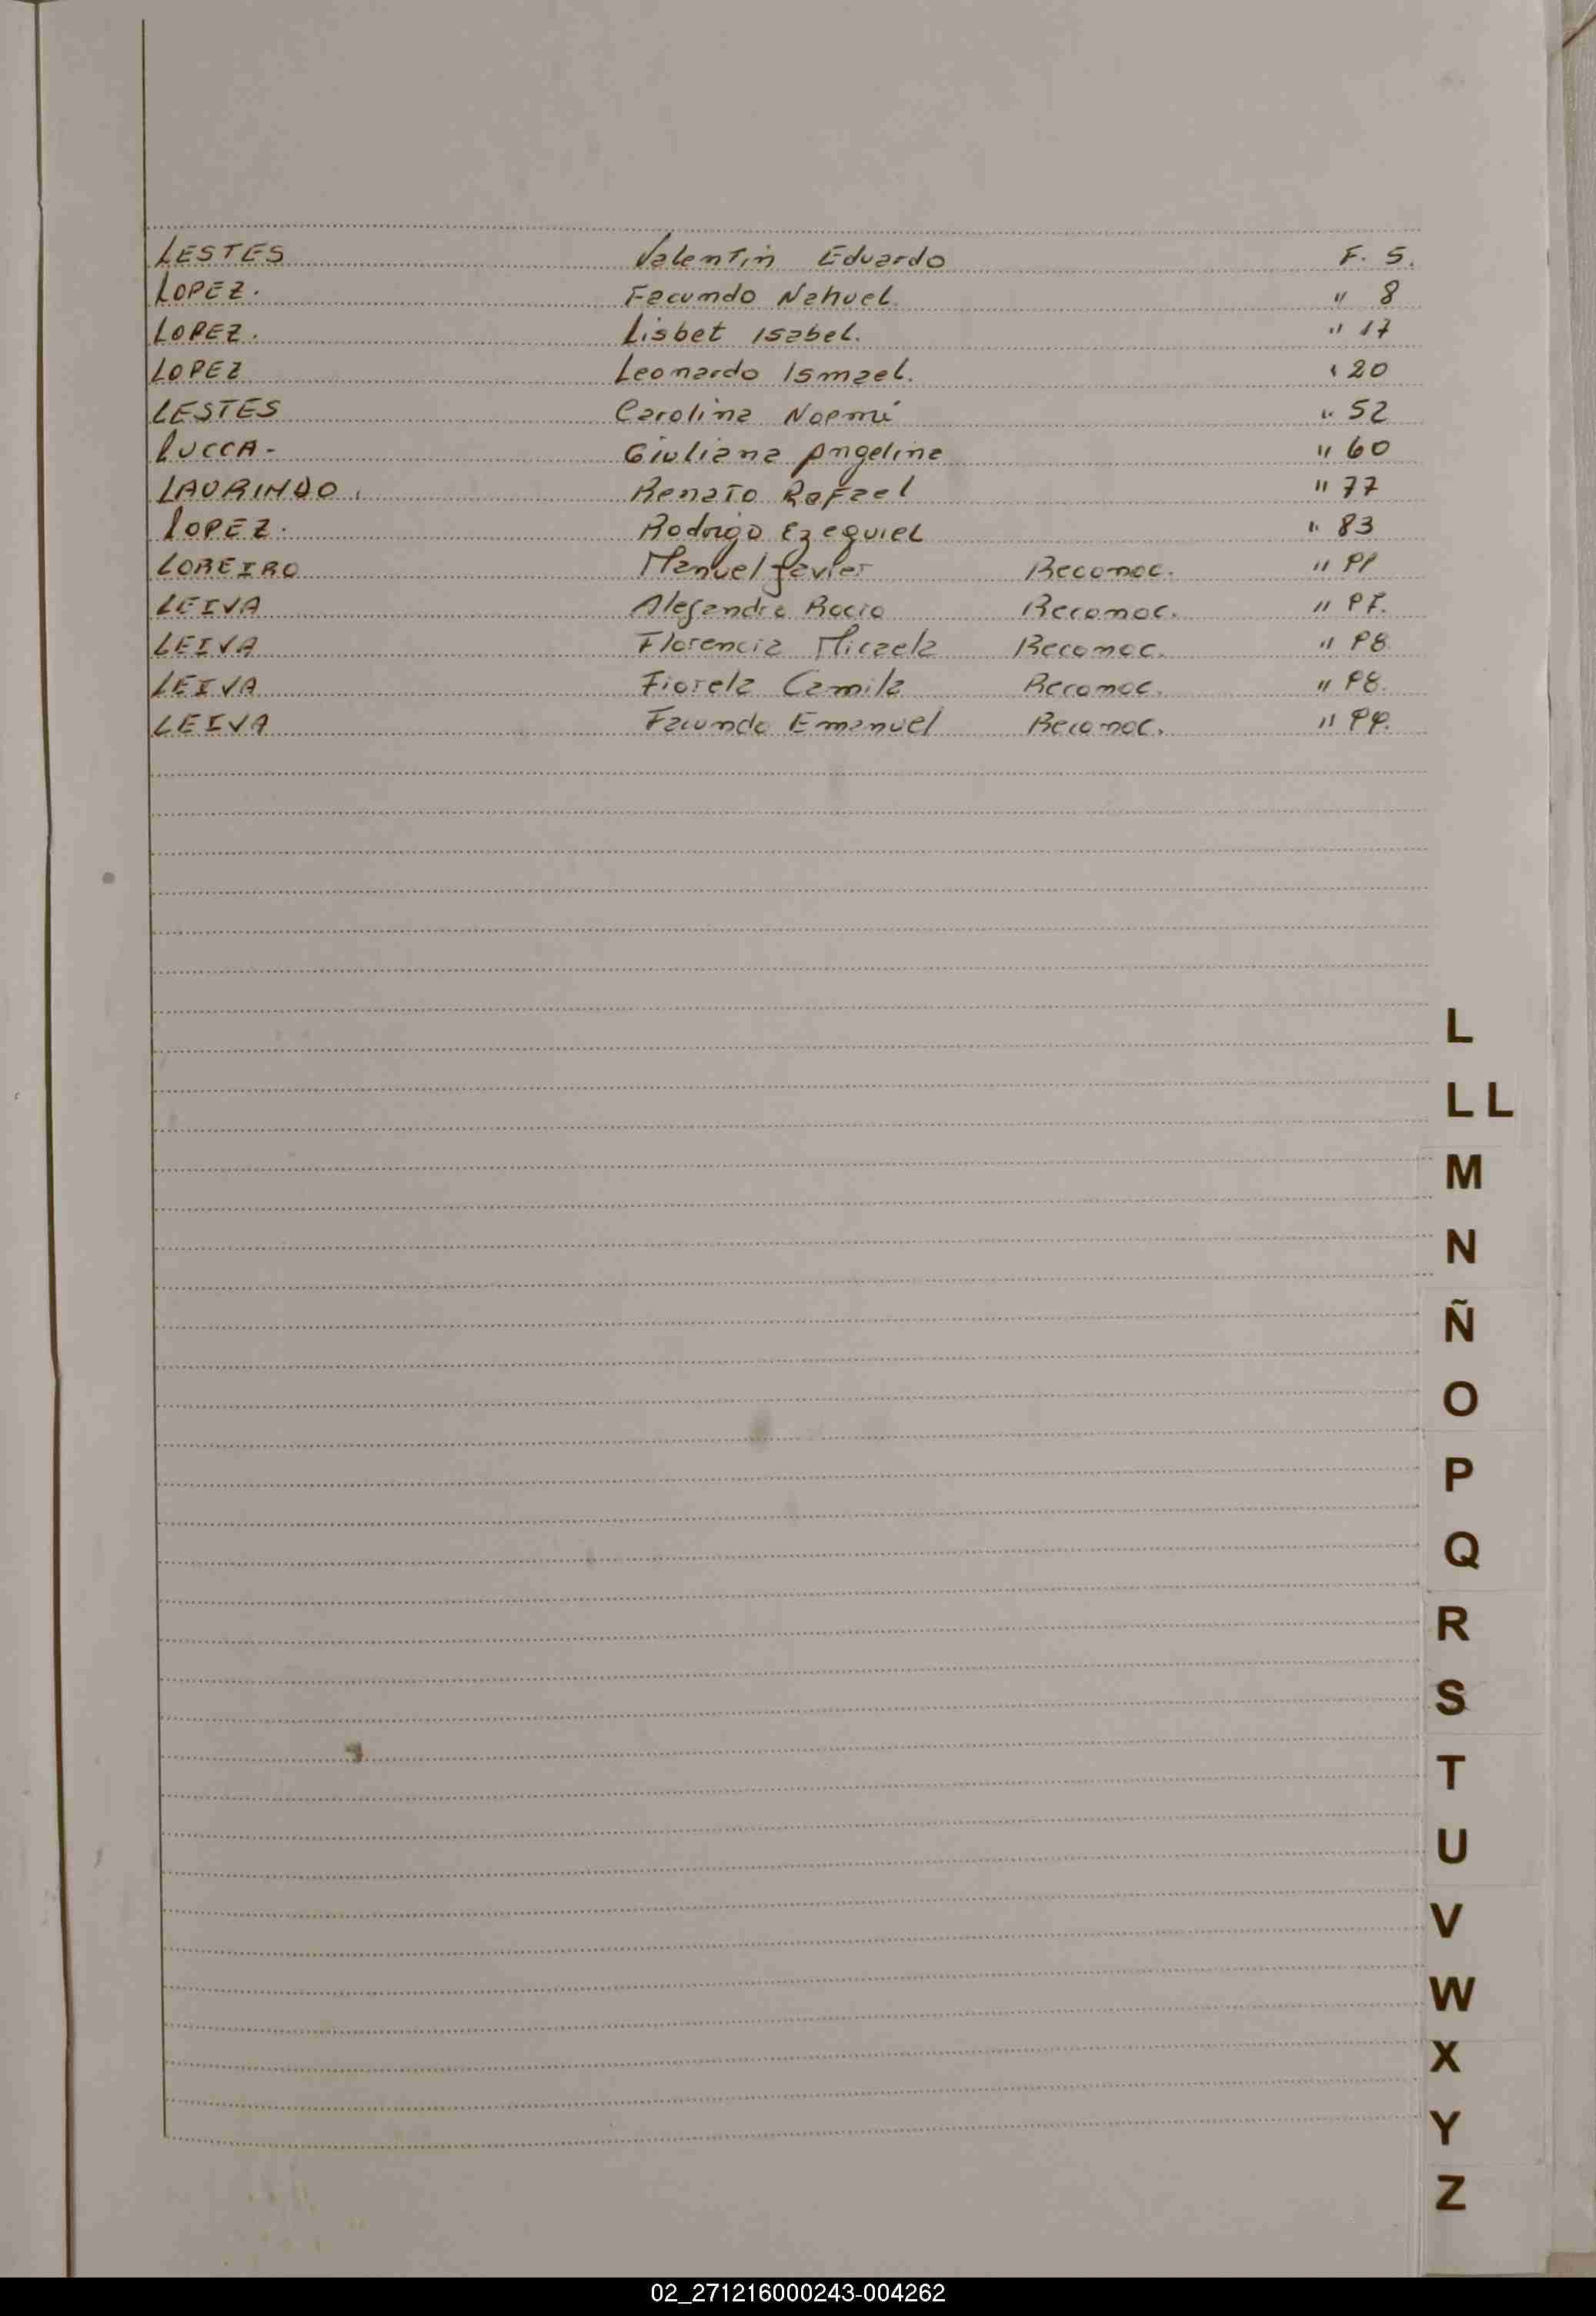 LESTES Valentin Eduardo F. 5.
LOPEZ. Facundo Nahuel. " 8
LOPEZ. Lisbet Isabel. " 17
LOPEZ Leonardo Ismael. " 20
LESTES Carolina Noemí " 52
LUCCA - Giuliana Angelina " 60
LAURINDO. Renato Rafael " 77
LOPEZ. Rodrigo Ezequiel " 83
LOREIRO Manuel Javier Reconoc. " 91
LEIVA Alejandra Rocio Reconoc. " 97.
LEIVA Florencia Micaela Reconoc. " 98
LEIVA Fiorela Camila Reconoc. " 98.
LEIVA Facundo Emanuel Reconoc. " 99.
L
LL
M
N
Ñ
O
P
Q
R
S
T
U
V
W
X
Y
Z
02_271216000243-004262